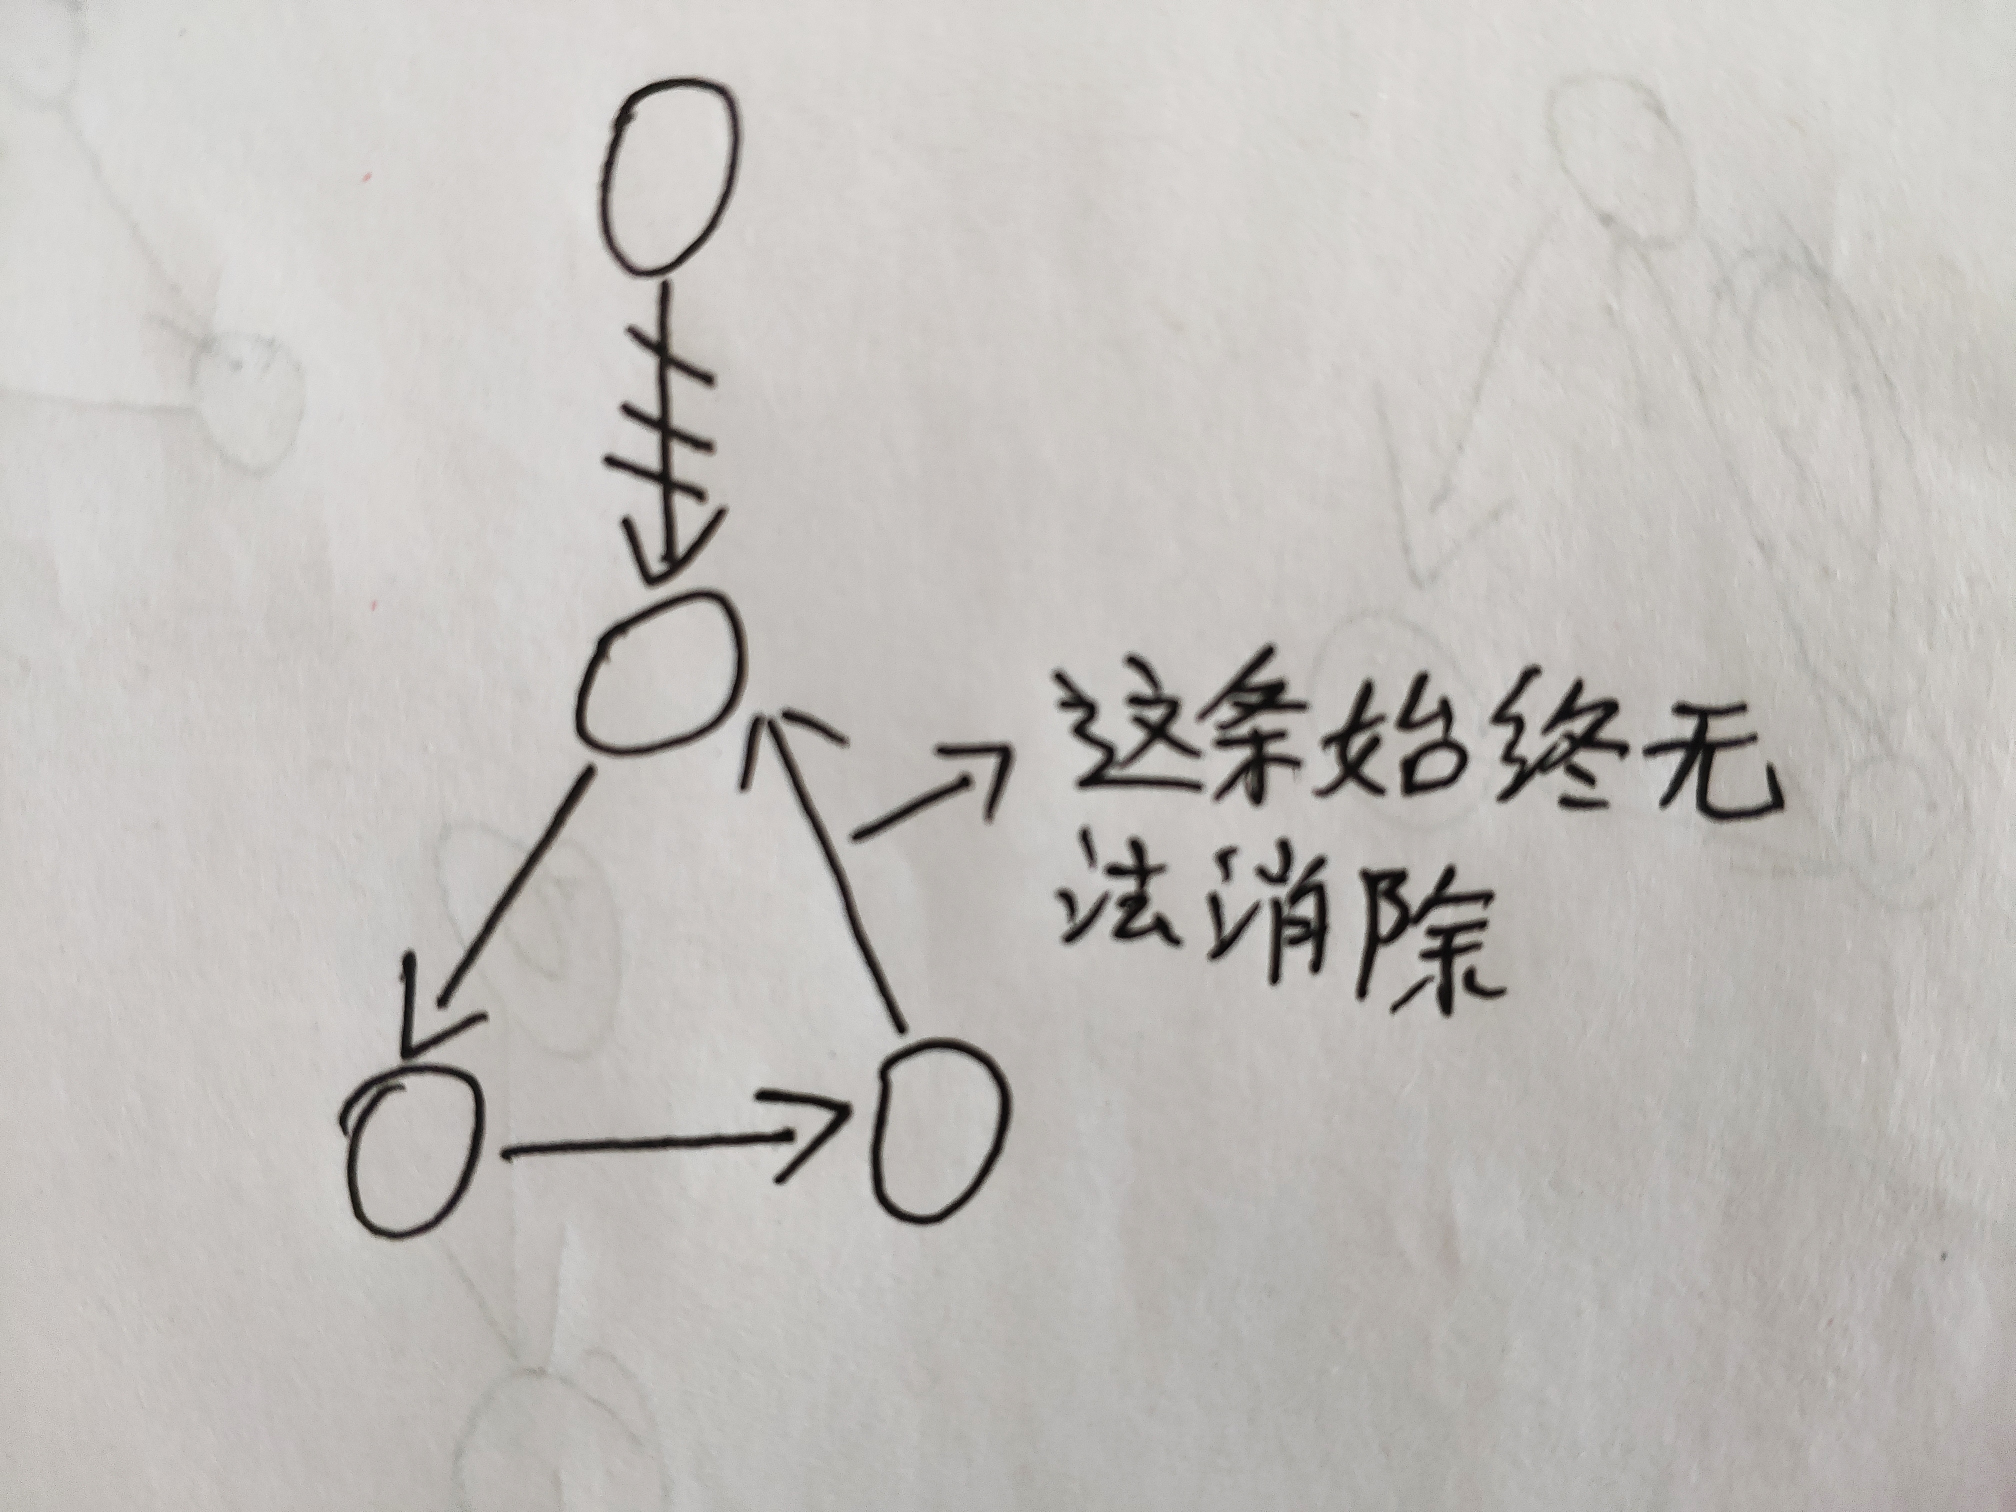 这条始终无
法消除